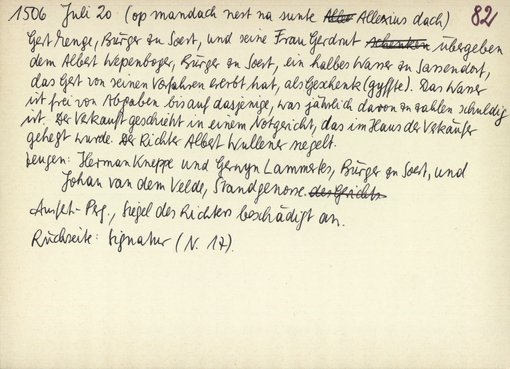 1506 Juli 20 (op mandach nest na sunte Allexius dach) 82
Gert Menge, Bürger zu Soest, und seine Frau Gerdrut schenken übergeben
dem Albert Wepenboger, Bürger zu Soest, ein halbes Wasser zu Sassendorf,
das Gert von seinen Vorfahren ererbt hat, als Geschenk (gyffte). Das Wasser
ist frei von Abgaben bis auf dasjenige, was jährlich davon zu zahlen schuldig
ist. Der Verkauf geschieht in einem Notgericht, das im Haus der Verkäufer
gehegt wurde. Der Richter Albert Wullener siegelt.
Zeugen: Herman Kneppe und Gerwyn Lammertes, Bürger zu Soest, und
Johan van dem Velde, Standgenosse des Gerichts
Ausf.- Perg., Siegel des Richters beschädigt an.
Rückseite: Signatur (N. 17).